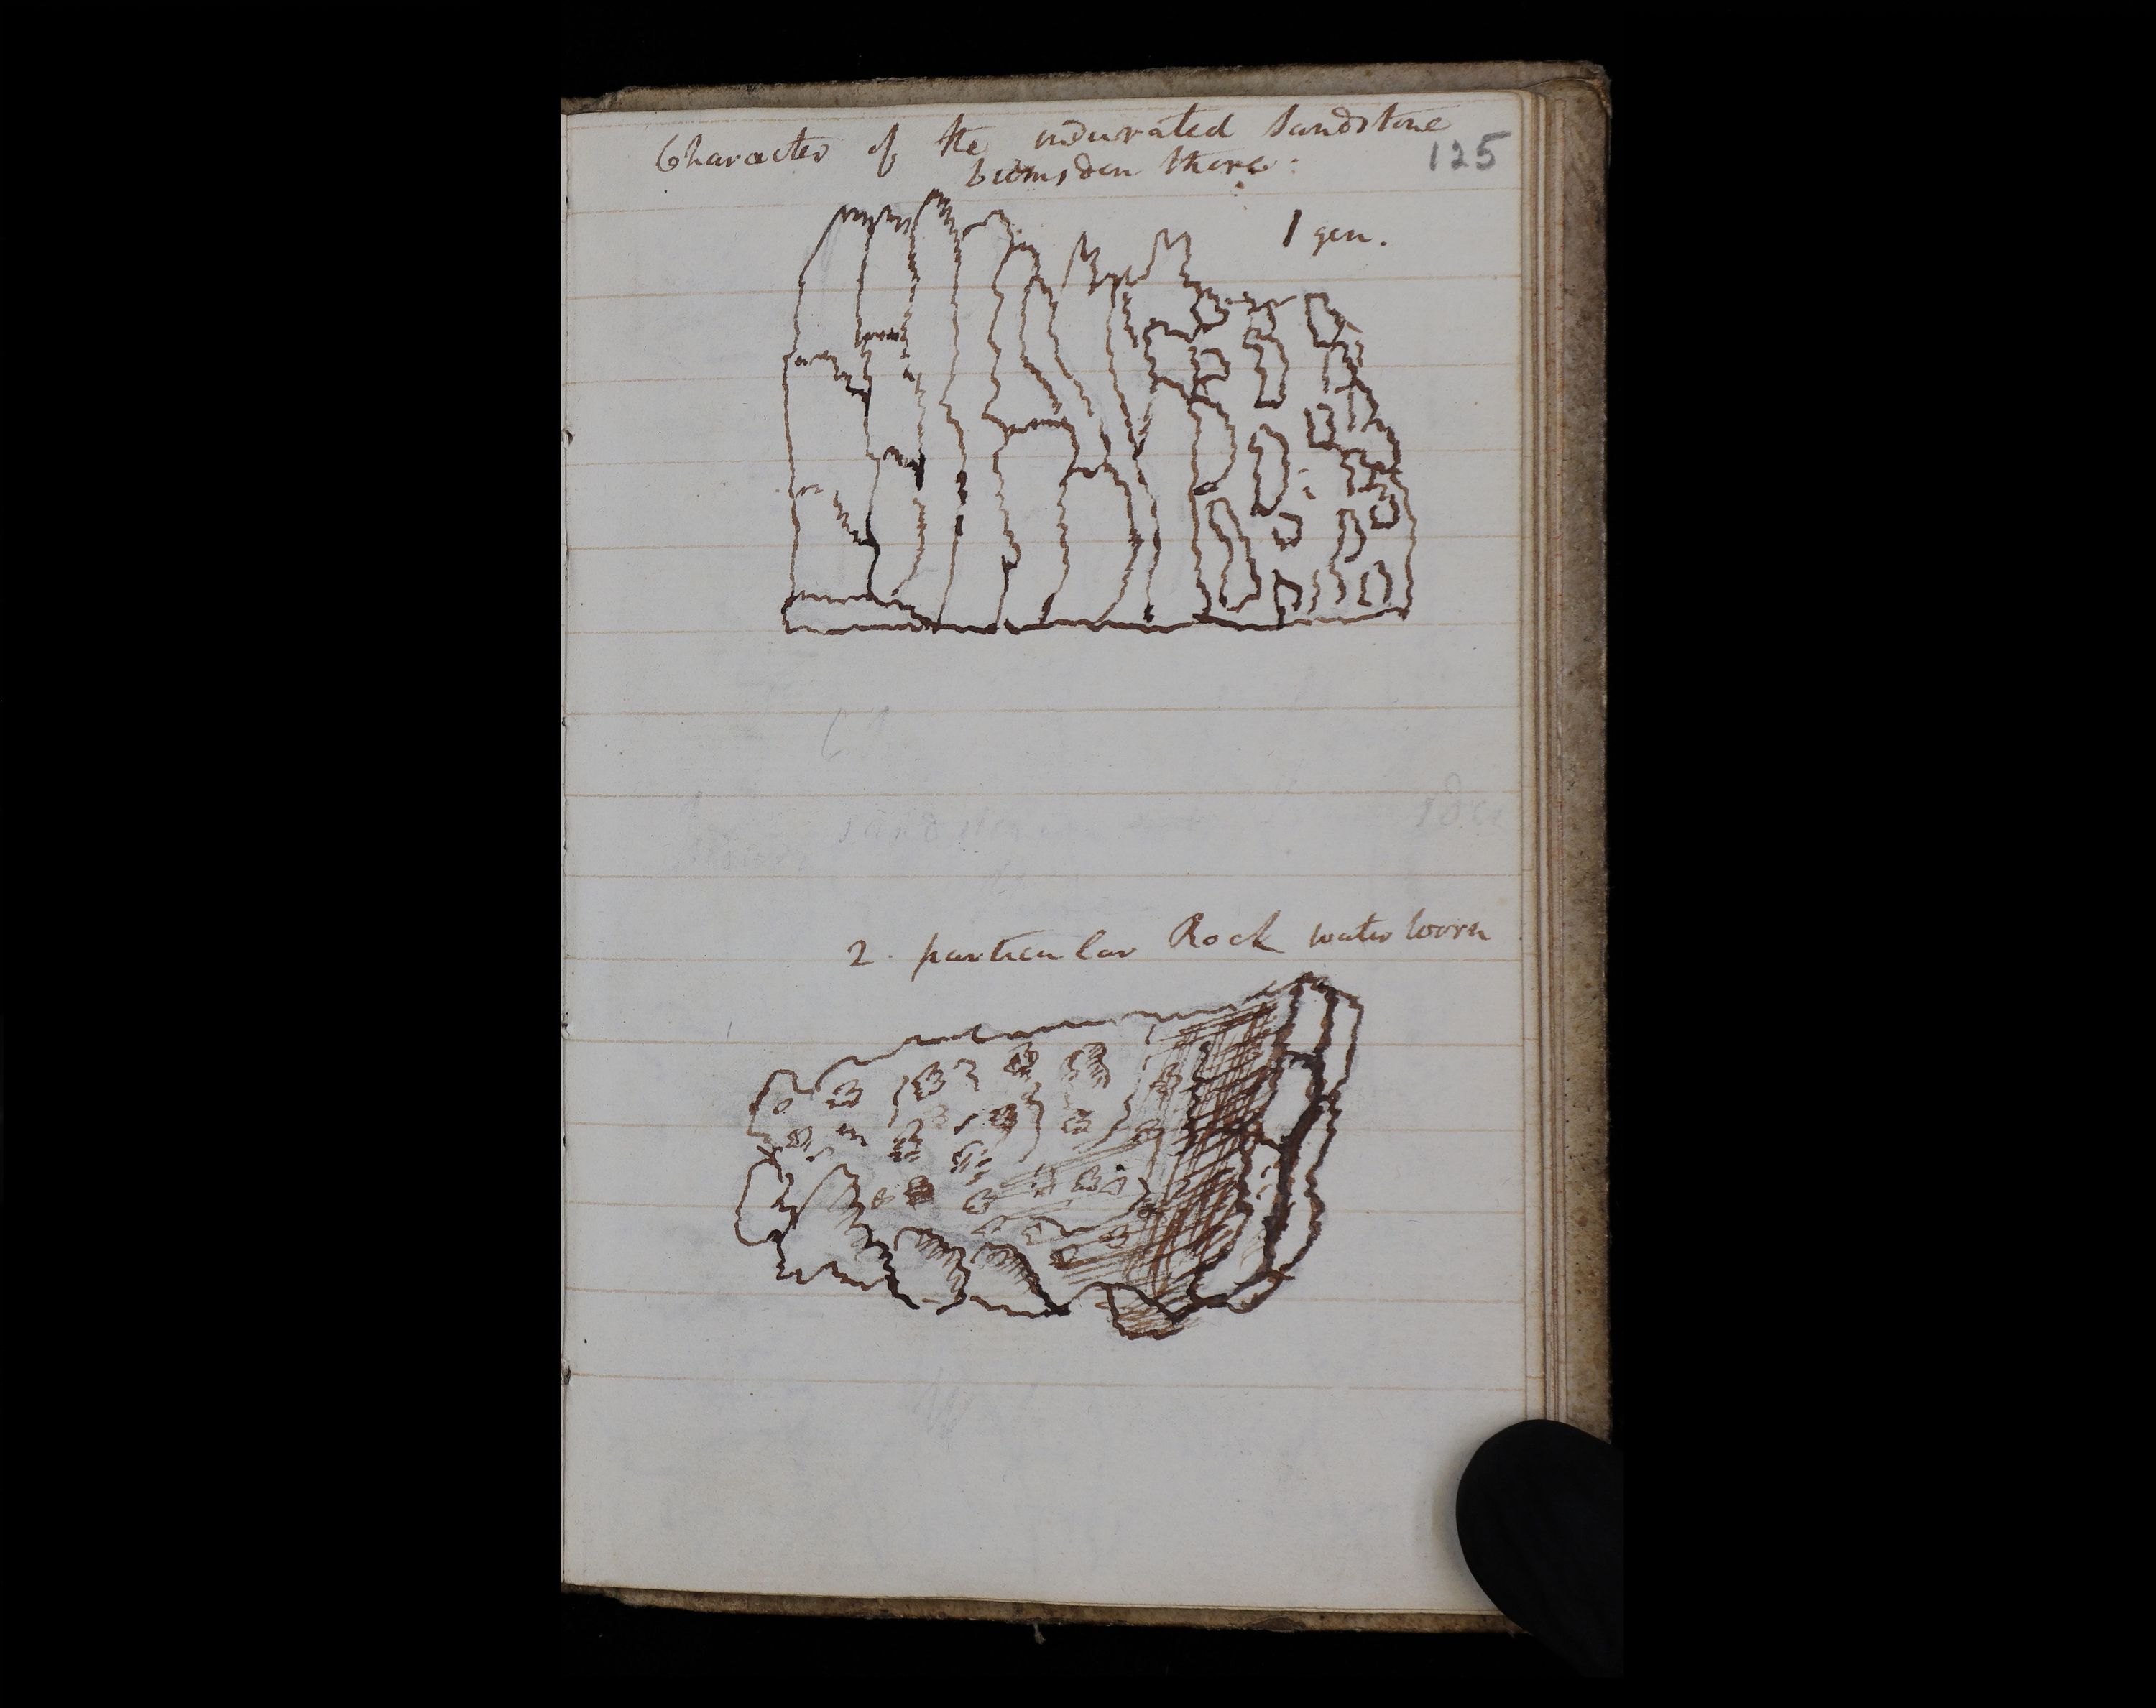 Character of the indurated Sandstone
125
there:
1 gen.
2. particular Rock water worn